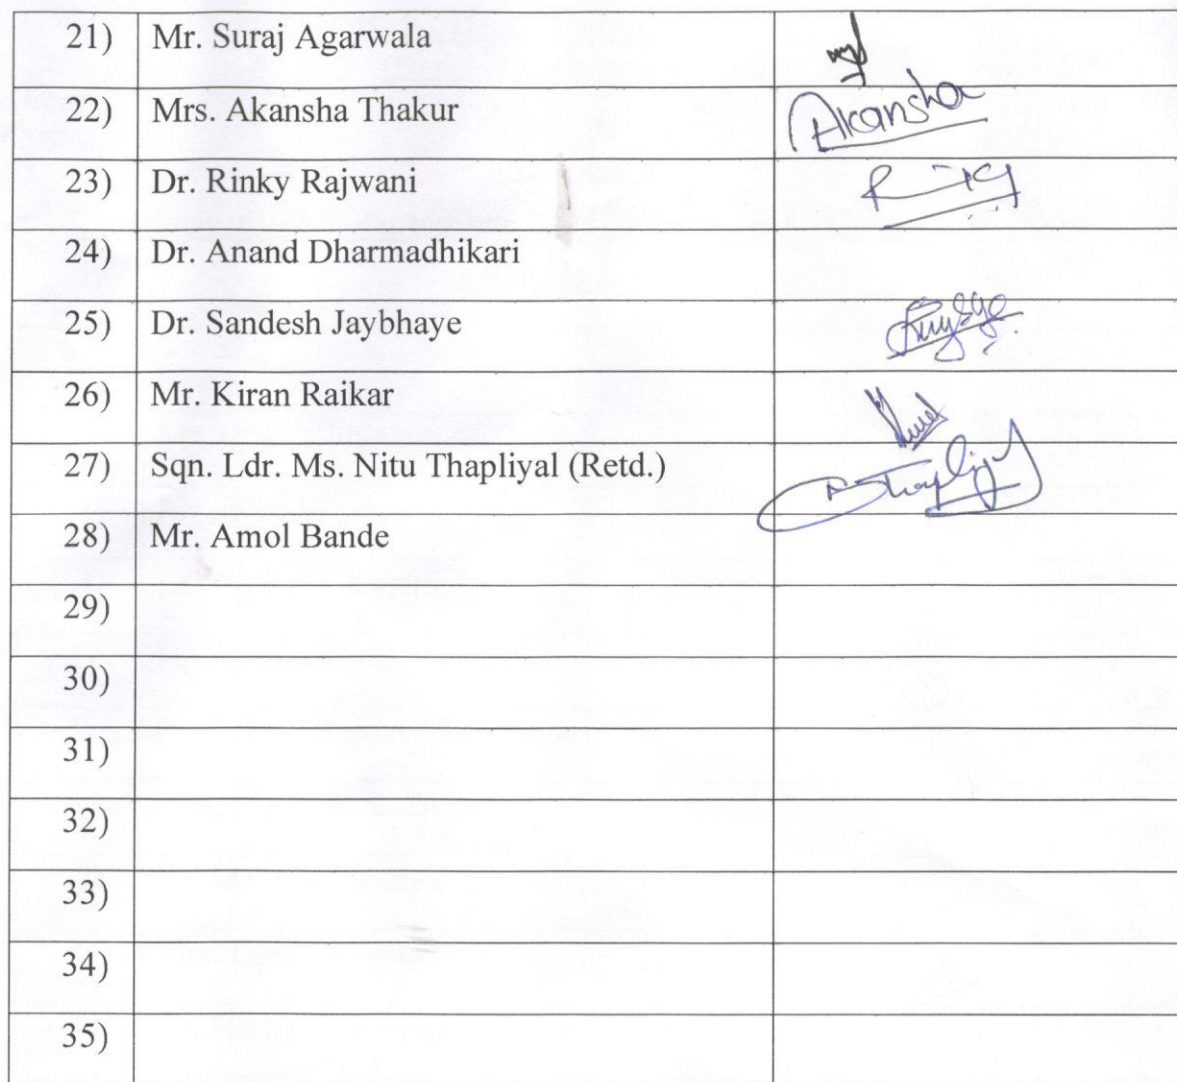 21) Mr. Suraj Agarwala
22) Mrs. Akansha Thakur Akansha
23) Dr. Rinky Rajwani
24) Dr. Anand Dharmadhikari
25) Dr. Sandesh Jaybhaye
26) Mr. Kiran Raikar
27) Sqn. Ldr. Ms. Nitu Thapliyal (Retd.)
28) Mr. Amol Bande
29)
30)
31)
32)
33)
34)
35)